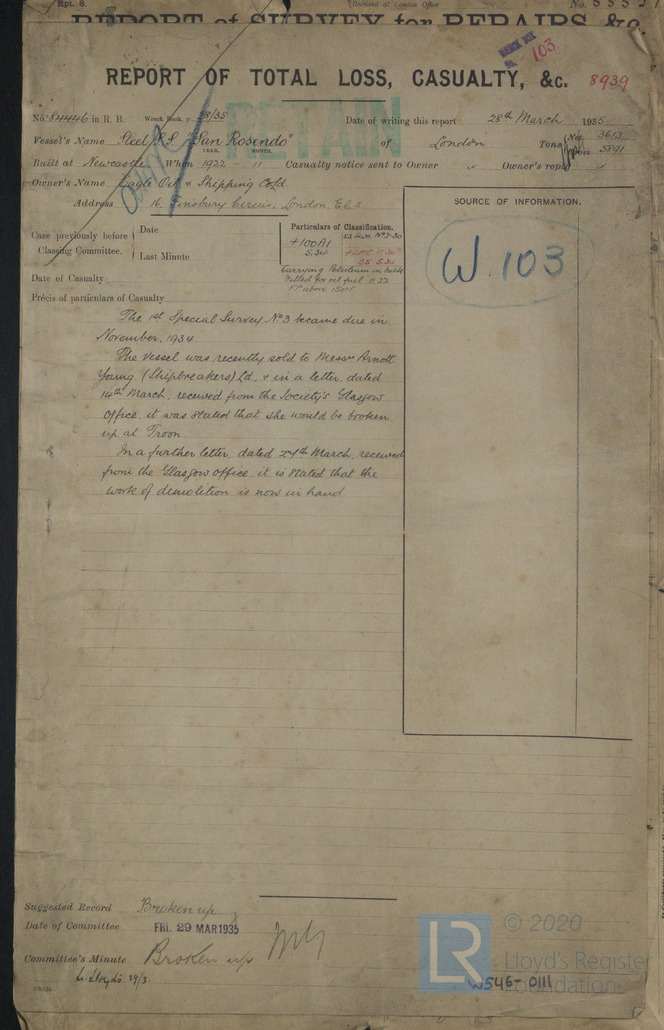 Rpt. 8.
Received at London Office
No.
REPORT of SURVEY for REPAIRS, &c.
WRECK BOX
No. 103
REPORT OF TOTAL LOSS, CASUALTY, &c. 8939
RETAIN
No. 84446 in R. B. Wreck Book, p. 28/35 Date of writing this report 28th March 1935
Vessel's Name Steel S.S. "San Rosendo" of London Tons Net 3613
Gross 5891
Built at Newcastle When YEAR. 1922 - MONTH. 11 Casualty notice sent to Owner Owner's reply
Owner's Name Eagle Oil & Shipping Co Ld
Address 16, Finsbury Circus, London E.C 2
SOURCE OF INFORMATION.
W. 103
Case previously before Classing Committee.
Date
Last Minute
Particulars of Classification.
SS No. 2-30
+100A1
5.34
+LMC 11.30
BS 5.34
Carrying Petroleum in bulk
Fitted for oil fuel 11.22
FP above 150°F
Date of Casualty
Précis of particulars of Casualty
The 1st Special Survey No 3 became due in
November, 1934.
The vessel was recently sold to Messrs Arnott
Young (Shipbreakers) Ld, & in a letter, dated
14th March, received from the Society's Glasgow
Office, it was stated that she would be broken
up at Troon.
In a further letter, dated 27th March, received
from the Glasgow office, it is stated that the
work of demolition is now in hand.
Suggested Record Broken up
Date of Committee FRI. 29 MAR 1935
Committee's Minute Broken up
L. Lloyd's 29/3.
LR
© 2020
Lloyd's Register
Foundation
W546-0111